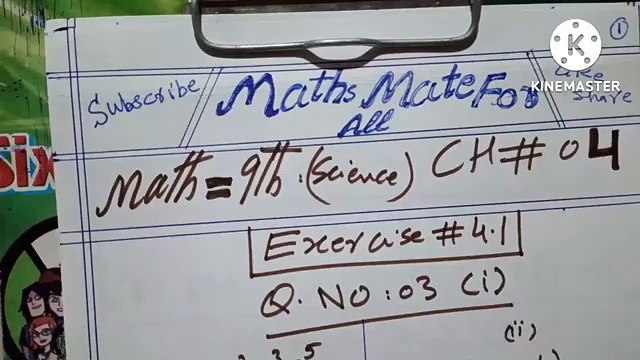 ①
K
KINEMASTER
Subscribe
Maths Mate For
All
Like
Share
Math = 9th. (Science) CH # 04
Exercise # 4.1
Q. NO : 03 (i)
(ii)
3 5
Six